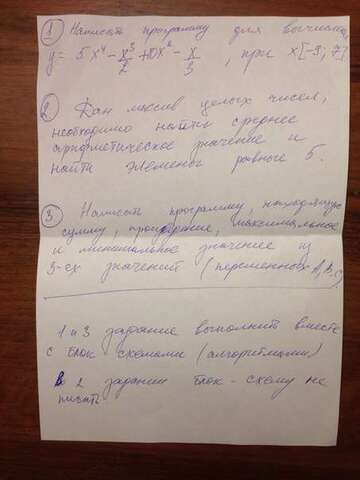 ① Написать программу для вычислен
y = 5x⁴ - x³/2 + 10x² - x/3, при x[-9; 7]
② Дан массив целых чисел,
необходимо найти среднее
арифметическое значение и
найти элементы равные 5.
③ Написать программу, находящую
сумму, произведение, максимальное
и минимальное значение из
3-ех значений (переменных A, B, C)
1 и 3 задание выполнить вместе
с блок схемами (алгоритмами)
В 2 задании блок-схему не
писать